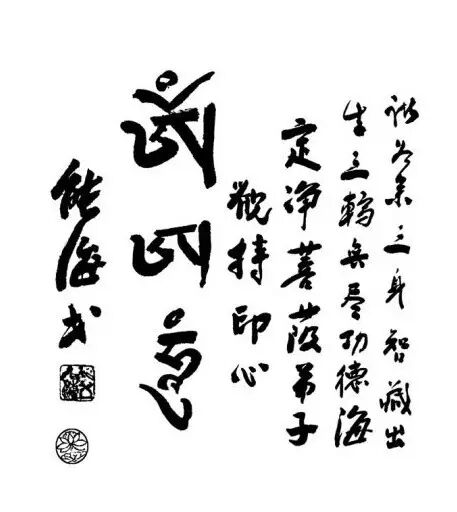 三身智藏出
生三輪無尽功德海
定净菩薩弟子
觀持印心
ༀ ཨ ཧཱུྃ
能海书